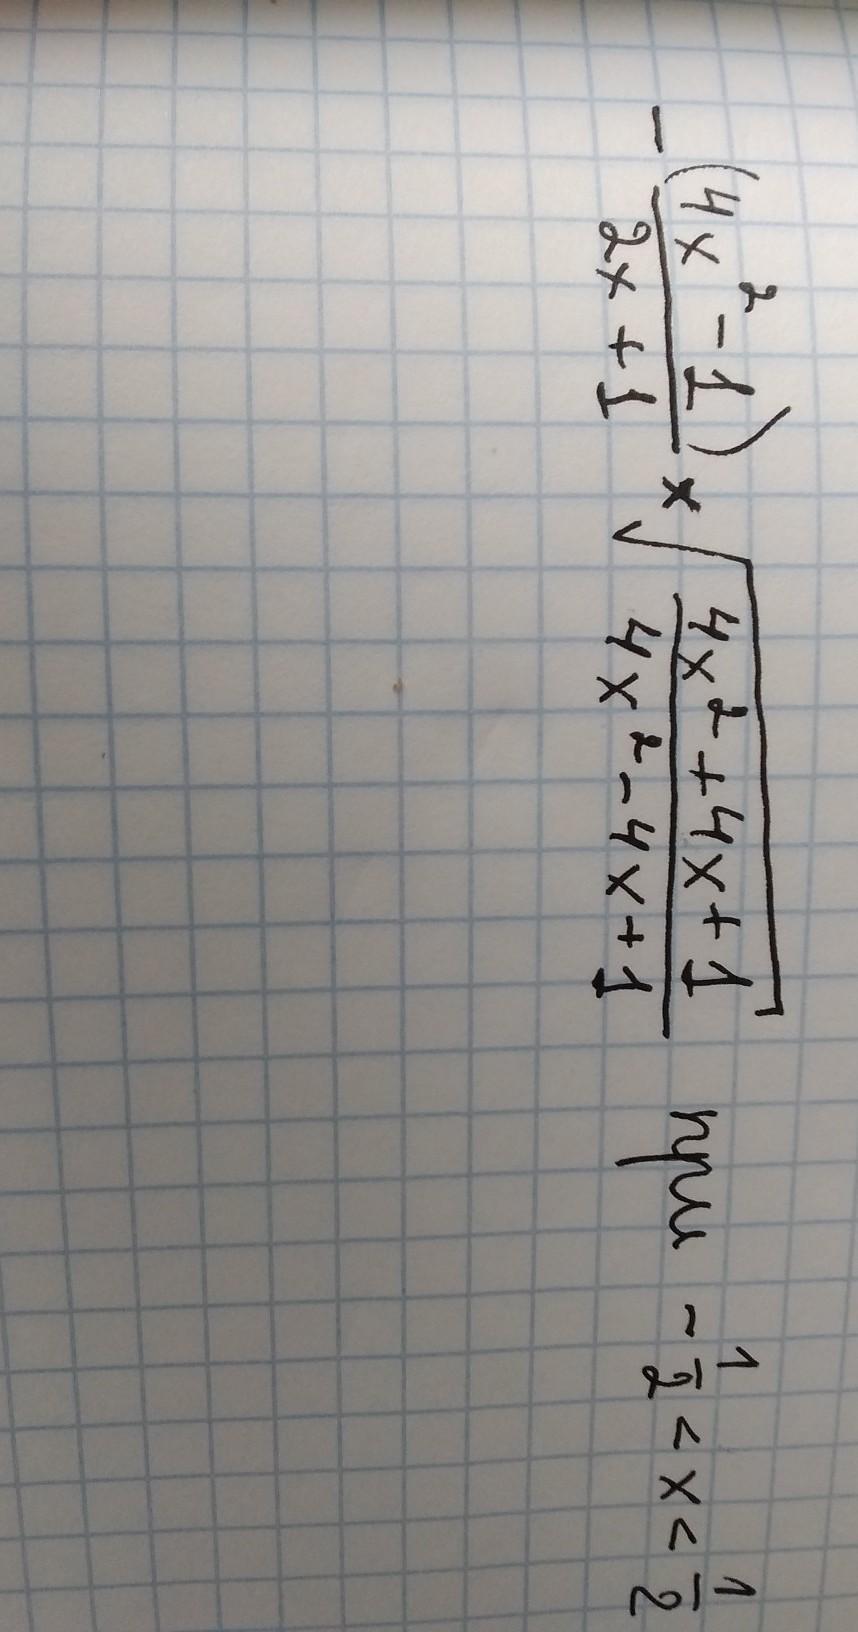 -(4x²-1)/(2x+1) × √((4x²+4x+1)/(4x²-4x+1)) при -1/2 < x < 1/2